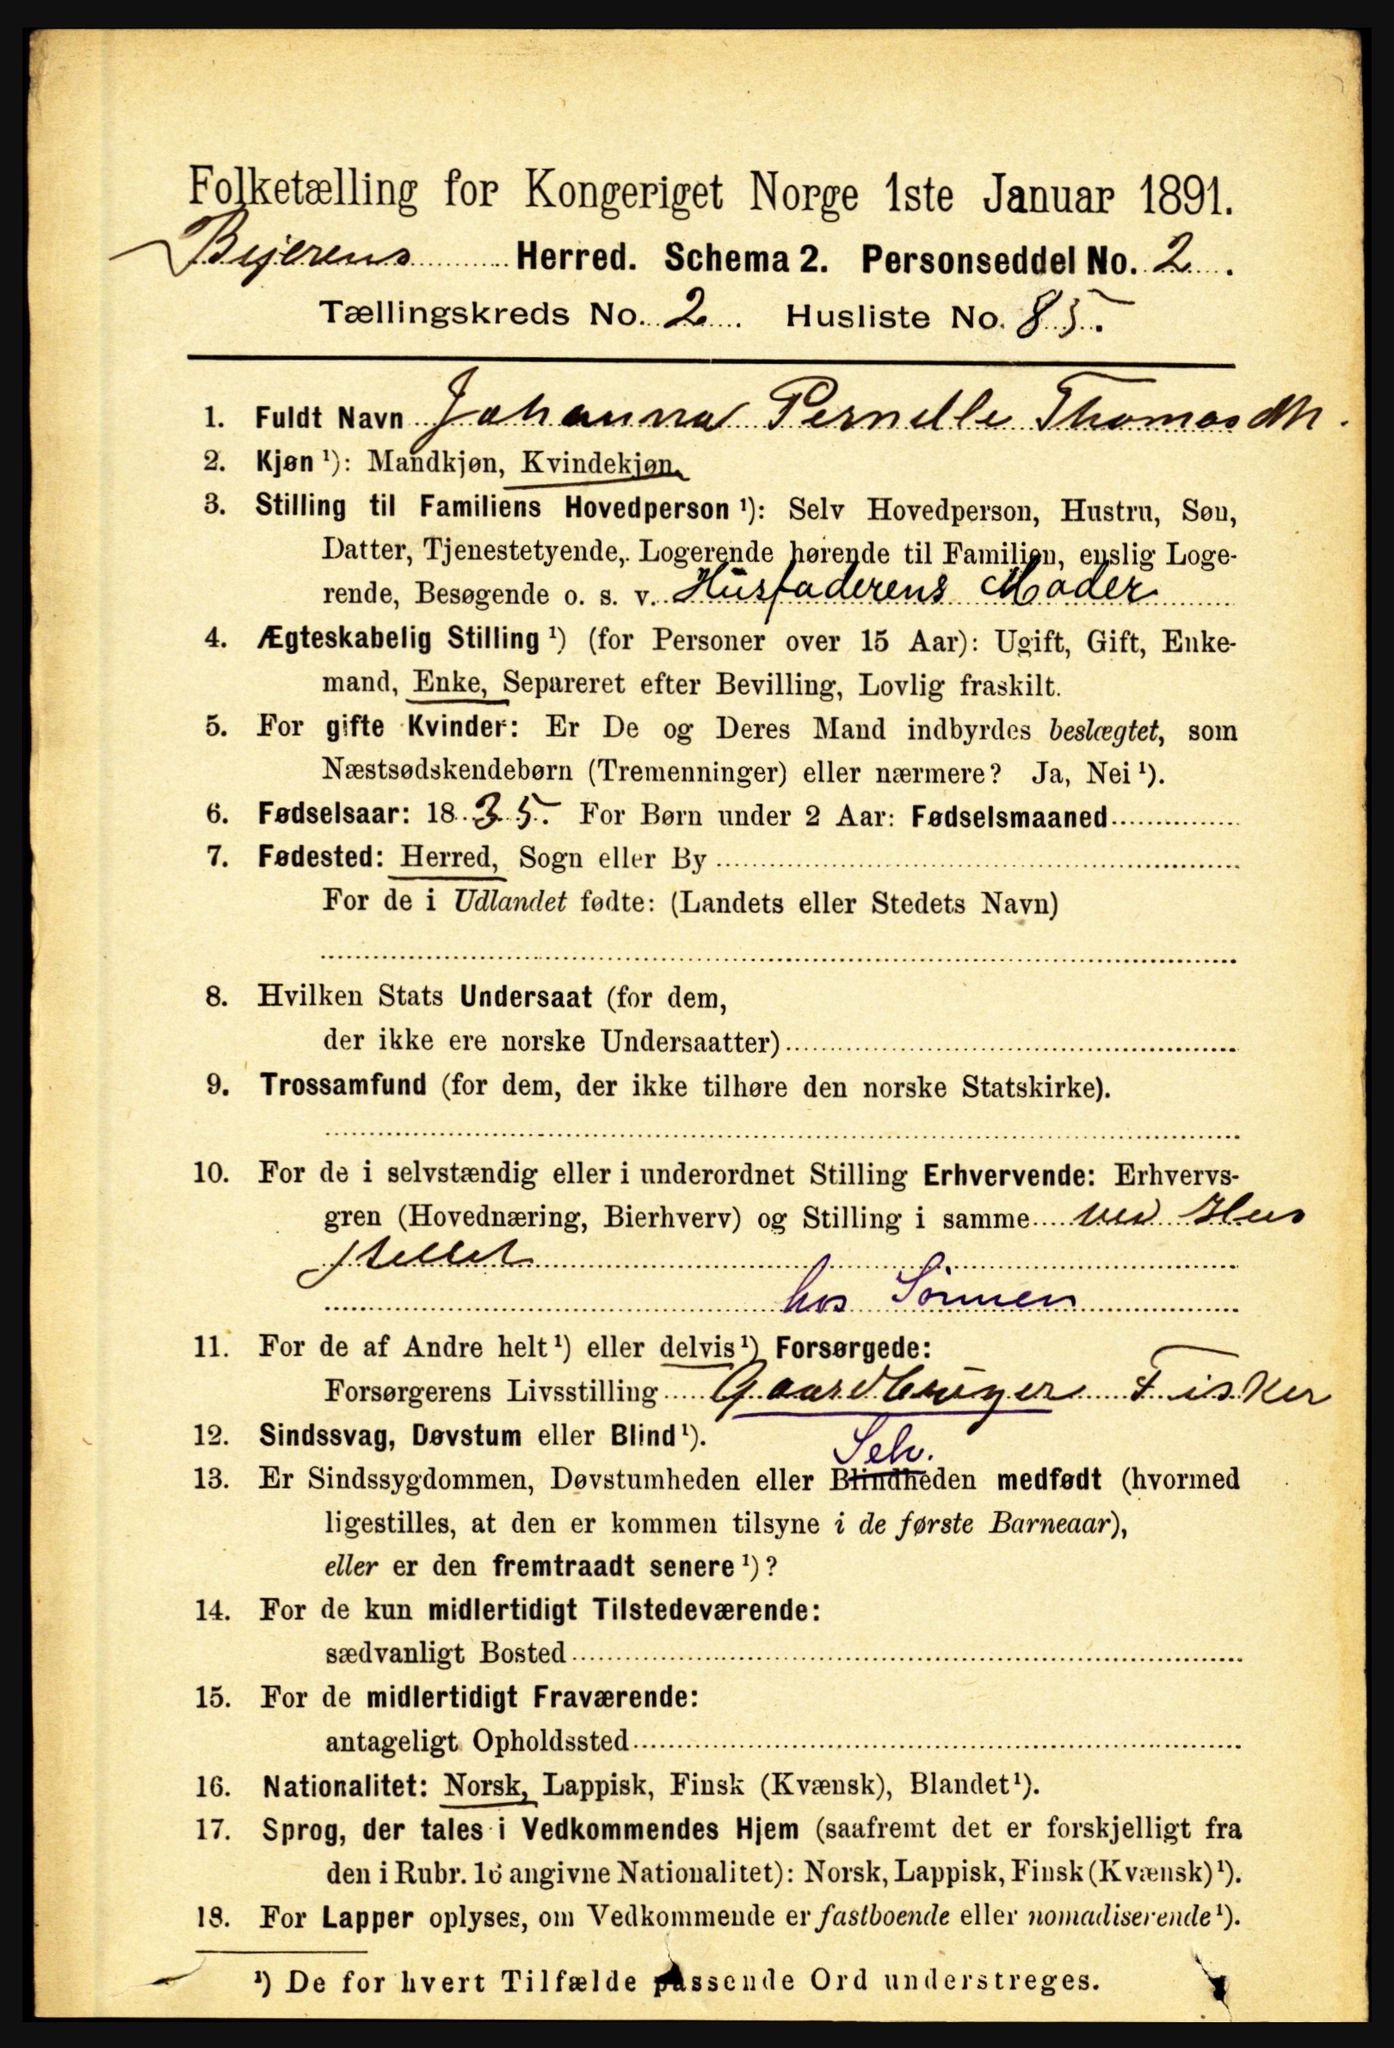 Folketælling for Kongeriget Norge 1ste Januar 1891.
Bejerens Herred. Schema 2. Personseddel No. 2.
Tællingskreds No. 2. Husliste No. 85.
1. Fuldt Navn Johanna Pernelle Thomasdtr.
2. Kjøn ¹): Mandkjøn, Kvindekjøn.
3. Stilling til Familiens Hovedperson ¹): Selv Hovedperson, Hustru, Søn,
Datter, Tjenestetyende, Logerende hørende til Familien, enslig Loge-
rende, Besøgende o. s. v. Husfaderens Moder
4. Ægteskabelig Stilling ¹) (for Personer over 15 Aar): Ugift, Gift, Enke-
mand, Enke, Separeret efter Bevilling, Lovlig fraskilt.
5. For gifte Kvinder: Er De og Deres Mand indbyrdes beslægtet, som
Næstsødskendebørn (Tremenninger) eller nærmere? Ja, Nei ¹).
6. Fødselsaar: 1835. For Børn under 2 Aar: Fødselsmaaned
7. Fødested: Herred, Sogn eller By
For de i Udlandet fødte: (Landets eller Stedets Navn)
8. Hvilken Stats Undersaat (for dem,
der ikke ere norske Undersaatter)
9. Trossamfund (for dem, der ikke tilhøre den norske Statskirke).
10. For de i selvstændig eller i underordnet Stilling Erhvervende: Erhvervs-
gren (Hovednæring, Bierhverv) og Stilling i samme ved Hus
stellet
hos Sønnen
11. For de af Andre helt ¹) eller delvis ¹) Forsørgede:
Forsørgerens Livsstilling Gaardbruger Fisker
12. Sindssvag, Døvstum eller Blind ¹).
Selv.
13. Er Sindssygdommen, Døvstumheden eller Blindheden medfødt (hvormed
ligestilles, at den er kommen tilsyne i de første Barneaar),
eller er den fremtraadt senere ¹)?
14. For de kun midlertidigt Tilstedeværende:
sædvanligt Bosted
15. For de midlertidigt Fraværende:
antageligt Opholdssted
16. Nationalitet: Norsk, Lappisk, Finsk (Kvænsk), Blandet ¹).
17. Sprog, der tales i Vedkommendes Hjem (saafremt det er forskjelligt fra
den i Rubr. 16 angivne Nationalitet): Norsk, Lappisk, Finsk (Kvænsk) ¹).
18. For Lapper oplyses, om Vedkommende er fastboende eller nomadiserende ¹).
¹) De for hvert Tilfælde passende Ord understreges.